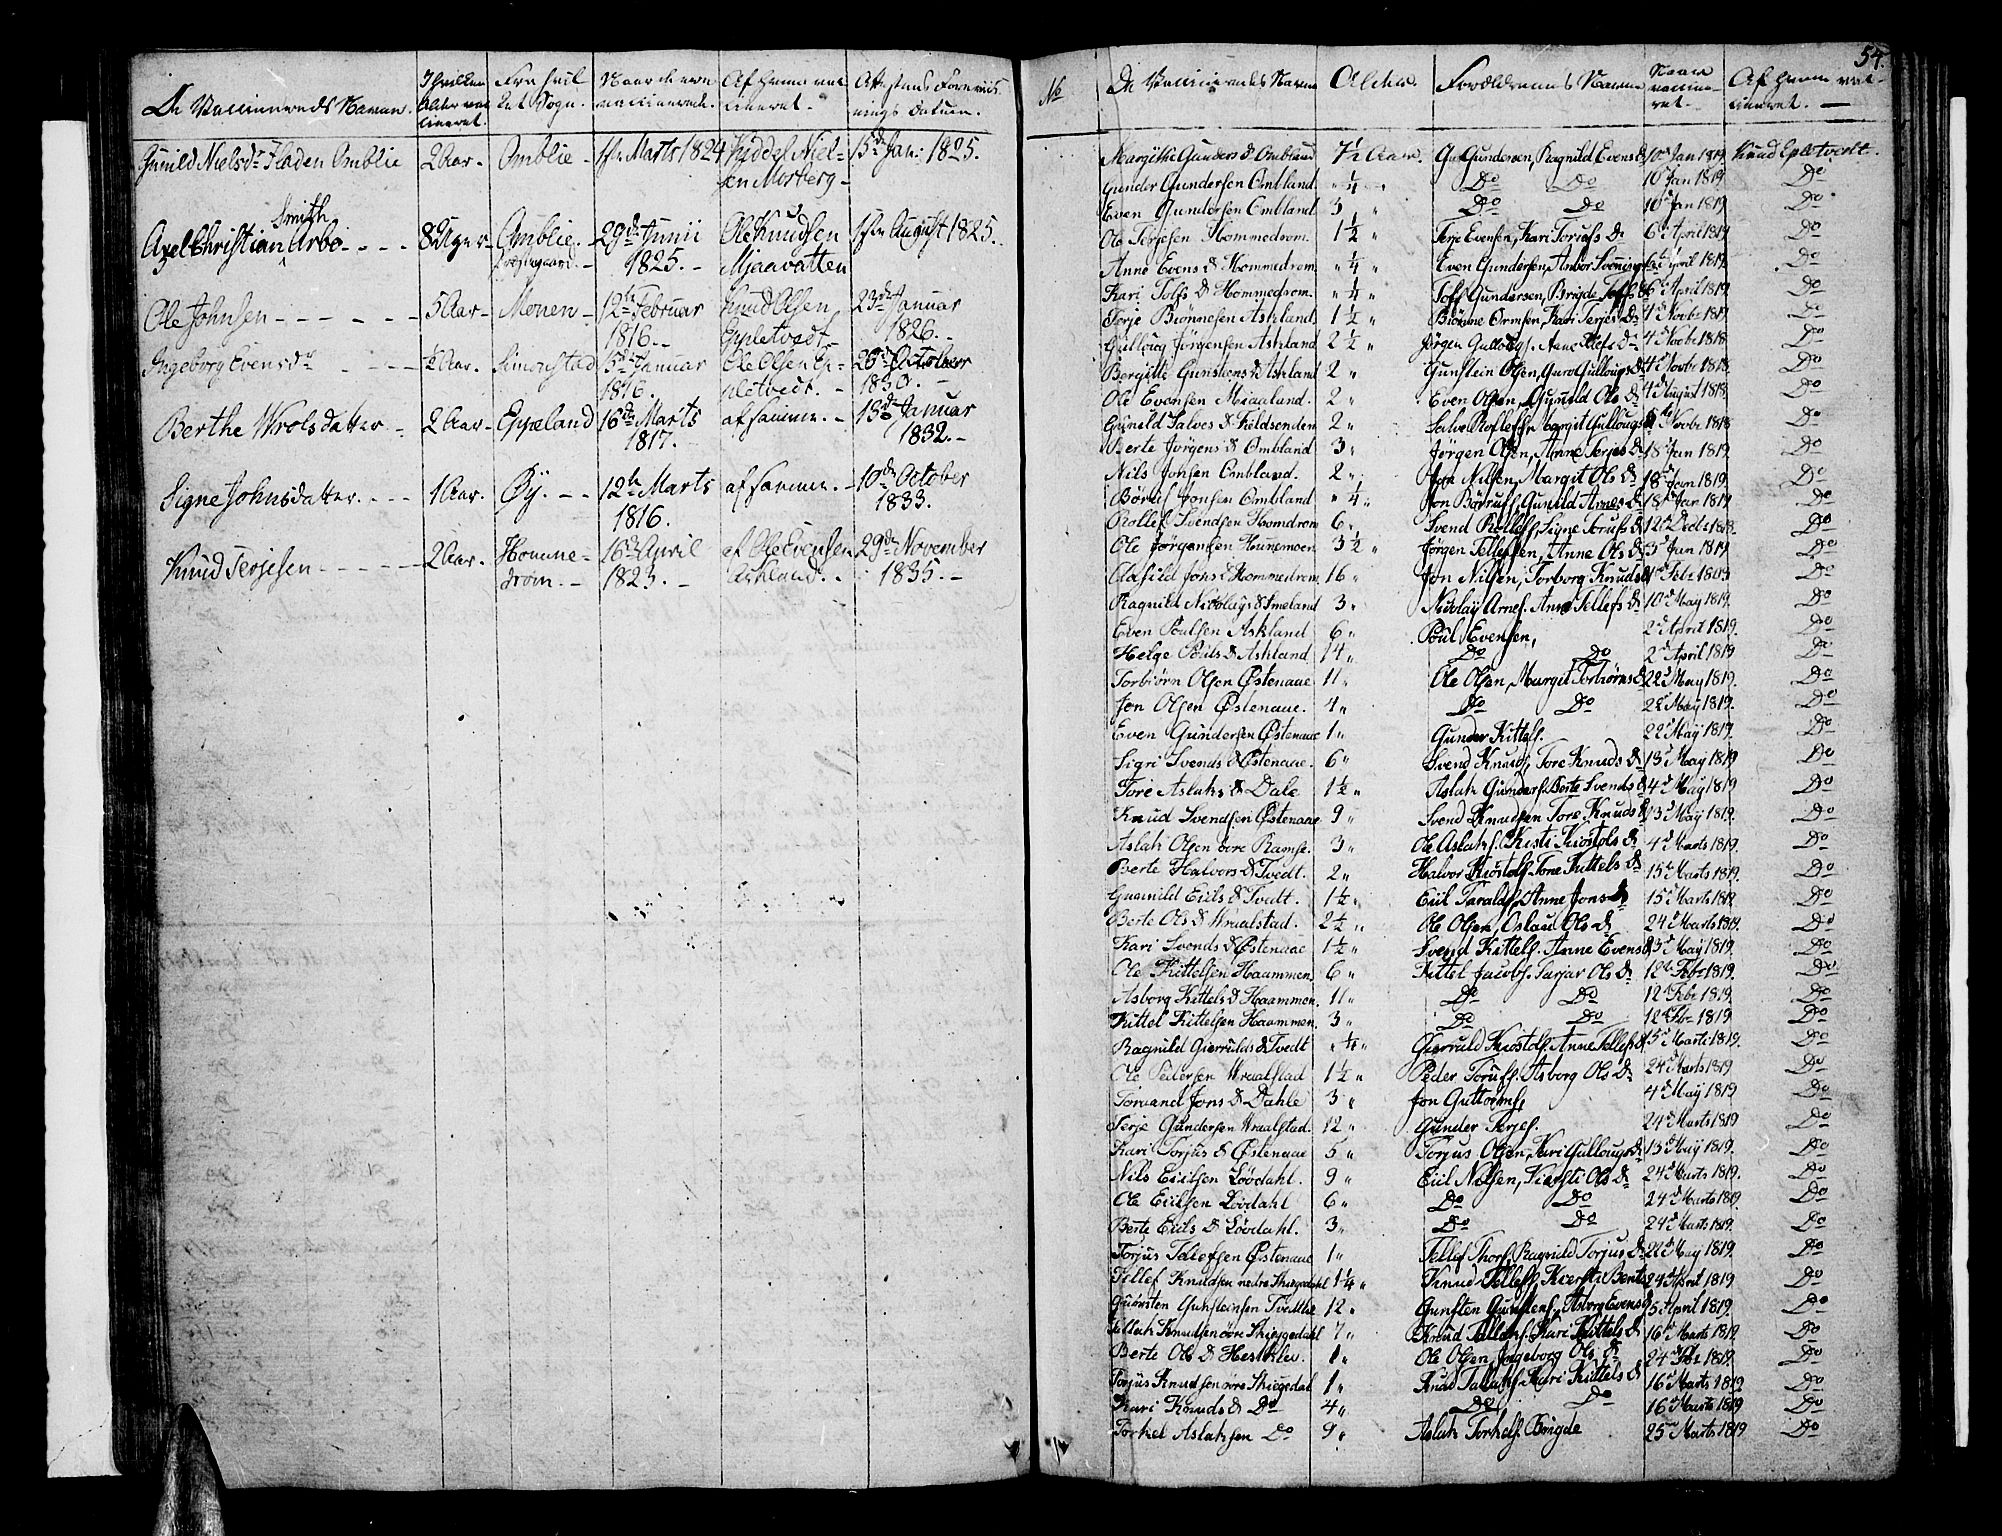 De Vaccineredes Navne. I hvilken Alder vaccineret. Fra hvilket Sogn. Naar de ere vaccinerede. Af hvem vaccineret. Attestens Foreviisnings Datum.
Gunild Nielsdr Fladen Omblie 2 Aar. Omblie 1ste Marts 1824 Kiddel Nielsen Morberg 15de Jan: 1825.
Axel Christian Smith Arbo 8 Uger Omblie Præstegaard 29de Junii 1825. Ole Knudsen Mjaavatten 1ste August 1825.
Ole Johnsen 5 Aar Monen 12te Februar 1816. Knud Olsen Eppletvedt 23de Januar 1826.
Ingeborg Evensdr ½ Aar. Simonstad 15de Januar 1816. Ole Olsen Eppletvedt. 26de October 1830.
Berthe Wrolsdatter 2 Aar Eppeland 16de Marts 1817. af samme. 13de Januar 1832.
Signe Johnsdatter 1 Aar. Øy. 12te Marts 1816. af samme. 10de October 1833.
Knud Terjesen 2 Aar Hommedrom. 16de April 1823. af Ole Evensen Askland. 29de November 1835.
54.
No De Vaccineredes Navne Alder. Forældrenes Navne Naar vaccineret. Af hvem vaccineret.
Margithe Gunders D Ombland 7½ Aar. Gundersen, Ragnild Evens D 10 Jan 1819 Knud Epletvedt.
Gunder Gundersen Ombland " ¼ " Do Do 10 Jan 1819 Do
Even Gundersen Ombland 3 " Do Do 10 Jan 1819 Do
Ole Terjesen Hommedrom. 1½ " Terje Evensen, Kari Torjuss D 6 April 1819 Do
Anne Evens D Hommedrom " ¼ " Even Gundersen, Anbor 6 April 1819 Do
Kari Tolfs D Hommedrom. " ¼ " Tolf Gundersen, Brigde Tolfs D 6 April 1819 Do
Terje Biønnesen Askland 1½ " Biønne Ormsen, Kari Terjes D 1 Novbr 1819 Do
Gulloug Jørgensen Askland 2½ " Jørgen Gullougs. Anne Olefs D 4 Novbr 1818 Do
Bergitte Gunstens D Askland 2 " Gunstein Olsen, Guro Gullougs D 4 Novbr 1818. Do
Ole Evensen Miaaland. 2 " Even Olsen, Gunild Ols D 4 August 1818. Do
Gunild Salves D Fieldsenden 2 " Salve Rollefs, Margit Gullougs D Novbr 1818 Do
Berte Jørgens D Ombland 3 " Jørgen Olsen, Anne Terjes D 18 Jan 1819. Do
Nils Jonsen Ombland. 2 " Jon Nilsen, Margit Ols D 18 Jan 1819 Do
Børuf Jonsen Ombland " ¼ " Jon Børuff, Gunild Arnes D 18 Jan 1819 Do
Rollef Svendsen Homdrom 6 " Svend Rollefs, Signe Torufs D 12 Decbr 1818. Do
Ole Jørgensen Hunemoen 3½ " Jørgen Tellefsen, Anne Ols D 3 Jan 1819. Do
Olasild Jons D Hommedrom 16 " Jon Nilsen, Torborg Knuds D Febr 1803 Do
Ragnild Nicolays D Smeland 3 " Nicolay Arnes. Anne Tellefs D 10 May 1819. Do
Even Poulsen Askland 6 " Poul Evensen, 2 April 1819. Do
Helge Pouls D Askland 14 " Do Do 2 April 1819 Do
Torbiørn Olsen Østenaae 11 " Ole Olsen, Margit Torbiørns D 22 May 1819. Do
Jon Olsen Østenaae. 4 " Do Do 22 May 1819. Do
Even Gundersen Østenaae 1 " Gunder Kittels. 22 May 1819. Do
Sigri Svends D Østenaae. 6 " Svend Knuds, Tore Knuds D 13 May 1819 Do
Tore Aslaks D Dale 1½ " Aslak Gunders. Berte Svends D 4 May 1819 Do
Knud Svendsen Østenaae 9 " Svend Knudsen Tore Knuds D 13 May 1819. Do
Aslak Olsen øvre Ramse 3 " Ole Aslaks. Kisti Kiøstols D 4 Marts 1819. Do
Berte Halvors D Tvedt. 2 " Halvor Kiøstols. Tone Kittels D 15 Marts 1819. Do
Gunnild Eiils D Tvedt. 1½ " Eiil Taralds. Anne Jons D 15 Marts 1819 Do
Berte Ols D Wraalstad. 2½ " Ole Olsen, Aslau Ols D 24 Marts 1819. Do
Kari Svends D Østenaae 1½ " Svend Kittels. Anne Evens D 3 May 1819. Do
Ole Kittelsen Haammen 6 " Kittel Jacobs. Tarjar Ols D 12 Febr 1819. Do
Asborg Kittels D Haammen. 11 " Do Do 12 Febr 1819. Do
Kittel Kittelsen Haammen. 3 " Do Do 12 Febr 1819. Do
Ragnild Gierrulds D Tvedt " ¼ " Gierruld Kiøstols. Anne Tellefs D 15 Marts 1819. Do
Ole Pedersen Wraalstad 1½ " Peder Torufs. Asborg Ols D 24 Marts 1819. Do
Torvand Jons D Dahle 3 " Jon Guttorms, 4 May 1819 Do
Terje Gundersen Wraalstad. 12 " Gunder Terjes. 24 Marts 1819 Do
Kari Torjus D Østenaae 5 " Torjus Olsen, Kari Gullougs D 13 May 1819. Do
Nils Eiilsen Løvdahl. 9 " Eiil Nilsen, Kiersti Ols D 24 Marts 1819. Do
Ole Eiilsen Løvdahl 6 " Do Do 24 Marts 1819 Do
Berte Eiils D Løvdahl. 3 " Do Do 24 Marts 1819. Do
Torjus Tellefsen Østenaae 1 " Tellef Thors, Ragnild Torjus D 22 May 1819. Do
Tellef Knudsen nedre Skiegedahl 1¼ " Knud Tellefs, Kiersti Berts 24 April 1819 Do
Guunsten Gunsteinsen Tvedtlie 12 " Gunsten Gunstens, Asborg Evens D 5 April 1819. Do
Tellak Knudsen øvre Skieggedahl 7 " Knud Tallaks. Kari Kittels D 16 Marts 1819. Do
Berte Ols D Hesklev. 1 " Ole Olsen, Ingeborg Ols D 24 Febr 1819. Do
Torjus Knudsen øvre Skiegedal 1 " Knud Tallaks. Kari Kittels D 16 Marts 1819 Do
Kari Knuds D Do 4 " Do Do 16 Marts 1819 Do
Torkel Aslaksen Do 9 " Aslak Torkels. Brigde 25 Marts 1819 Do